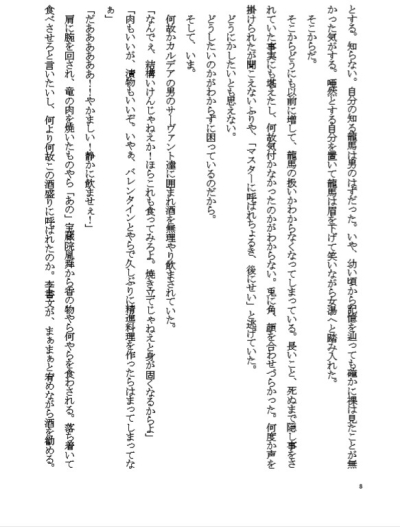 とする。知らない。自分の知る龍馬は男のはずだった。いや、幼い頃から記憶を辿っても確かに裸は見たことが無
かった気がする。唖然とする自分を置いて龍馬は眉を下げて笑いながら女湯へと踏み入れた。
そこからだ。
そこからどうにも以前に増して、龍馬の扱いがわからなくなってしまっている。長いこと、死ぬまで隠し事をさ
れていた事実にも堪えたし、何故気付かなかったのかがわからない。兎に角、顔を合わせづらかった。何度か声を
掛けられたが聞こえないふりや、「マスターに呼ばれちょるき、後にせい」と逃げていた。
どうにかしたいとも思えない。
どうしたいのかがわからずに困っているのだから。
そして、いま。
何故かカルデアの男のサーヴァント達に囲まれ酒を無理やり飲まされていた。
「なんでぇ、結構いけんじゃねえか！ほらこれも食ってみろよ。焼き立てじゃねえと身が固くなるからよ」
「肉もいいが、漬物もいいぞ。いやぁ、バレンタインとやらで久しぶりに精進料理を作ったらはまってしまってな
ぁ」
「だああああああ！！やかましい！静かに飲ませぇ！」
肩に腕を回され、竜の肉を焼いたものやら「あの」宝蔵院胤舜から香の物やら何やらを食わされる。落ち着いて
食べさせろと言いたいし、何より何故この酒盛りに呼ばれたのか。李書文が、まぁまぁと宥めながら酒を勧める。
8